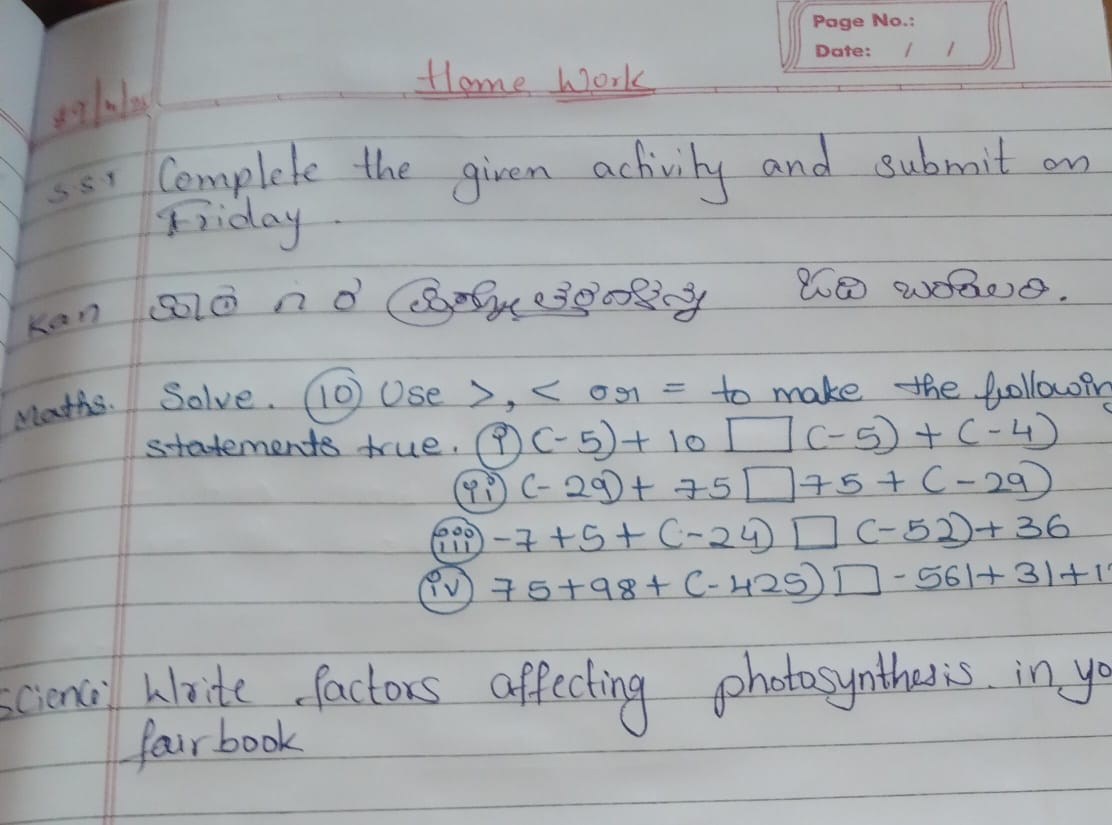 Page No.:
Date: / /
Home Work
SST Complete the given activity and submit on
Friday.
Kan ಪಾಠ ೧ ರ ಬರೆಯಿರಿ.
Maths. Solve. (10) Use >, < or = to make the following
statements true. (i) (-5) + 10 □ (-5) + (-4)
(ii) (-29) + 75 □ 75 + (-29)
(iii) -7 + 5 + (-24) □ (-52) + 36
(iv) 75 + 98 + (-425) □ -561 + 31 +
Science: Write factors affecting photosynthesis in
fair book